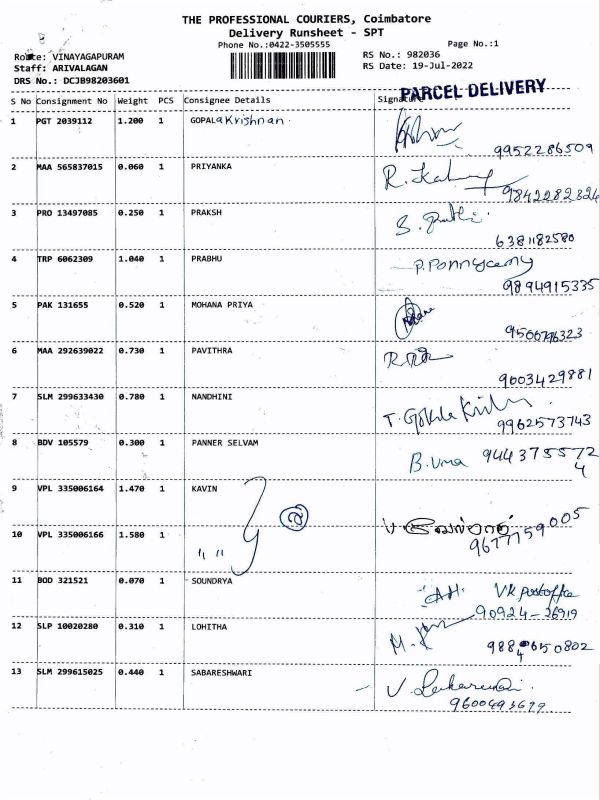 THE PROFESSIONAL COURIERS, Coimbatore
Delivery Runsheet - SPT
Phone No.:0422-3505555
Page No.:1
Route: VINAYAGAPURAM
RS No.: 982036
Staff: ARIVALAGAN
RS Date: 19-Jul-2022
DRS No.: DCJB98203601
PARCEL DELIVERY
S No Consignment No Weight PCS Consignee Details Signature
1 PGT 2039112 1.200 1 GOPALakrishnan.
9952286509
2 MAA 565837015 0.060 1 PRIYANKA
9842282324
3 PRO 13497085 0.250 1 PRAKSH
6381182580
4 TRP 6062309 1.040 1 PRABHU P. Ponnyscamy
9894915335
5 PAK 131655 0.520 1 MOHANA PRIYA
9500796323
6 MAA 292639022 0.730 1 PAVITHRA
9003429881
7 SLM 299633430 0.780 1 NANDHINI T. Gokula Krish
9962573743
8 BDV 105579 0.300 1 PANNER SELVAM B. Uma 944375572
4
9 VPL 335006164 1.470 1 KAVIN
9677759005
10 VPL 335006166 1.580 1 " "
11 BOD 321521 0.070 1 SOUNDRYA VK postoffice
90924-26919
12 SLP 10020280 0.310 1 LOHITHA
13 SLM 299615025 0.440 1 SABARESHWARI
9600493679